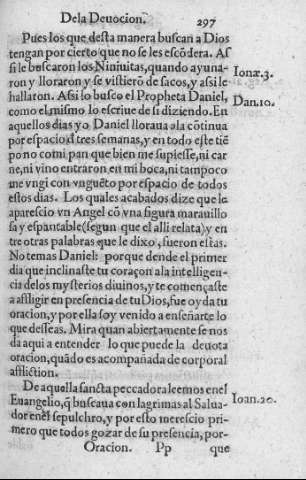 De la Deuocion. 297
Pues los que desta manera buscan a Dios
tengan por cierto que no se les escōdera. As
si le buscaron los Niniuitas, quando ayuna-
ron y lloraron y se vistierō de sacos, y assi le
hallaron. Assi lo busco el Propheta Daniel,
como el mismo lo escriue de si diziendo. En
aquellos dias yo Daniel lloraua ala cōtinua
por espacio đ tres semanas, y en todo este tiē
po no comi pan que bien me supiesse, ni car
ne, ni vino entraron en mi boca, ni tampoco
me vngi con vnguēto por espacio de todos
estos dias. Los quales acabados dize que le
aparescio vn Angel cō vna figura marauillo
sa y espantable (segun que el alli relata) y en
tre otras palabras que le dixo, fueron estas.
No temas Daniel: porque dende el primer
dia que inclinaste tu coraçon ala intelligen-
cia delos mysterios diuinos, y te començaste
a affligir en presencia de tu Dios, fue oyda tu
oracion, y por ella soy venido a enseñarte lo
que desseas. Mira quan abiertamente se nos
da aqui a entender lo que puede la deuota
oracion, quādo es acompañada de corporal
affliction.
De aquella sancta peccadora leemos enel
Euangelio, q̄ buscaua con lagrimas al Salua-
dor enel sepulchro, y por esto merescio pri-
mero que todos gozar de su presencia, por-
Oracion. Pp que
Ionæ.3.
Dan.10.
Ioan.20.